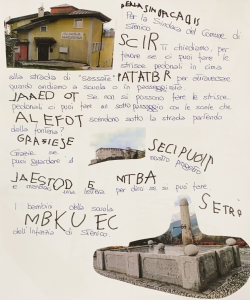 DELLA SIMPACADIS
Per la Sindaca del Comune di
Stenico
SCIR Ti chiediamo, per
favore se ci puoi fare le
strisce pedonali in cima
alla strada di "Sassate" PATATBR per
quando andiamo a scuola o in passeggiata
JARED OT Se non si possono fare le strisce
pedonali ci puoi fare un sotto passaggio con le scale che
ALEFOT scendono sotto la strada partendo
dalla fontana?
GRASIESE
Grazie se
puoi guardare il nostro progetto
SECIPUOII
JAESTOD E NTBA
e per dirci se si può fare
SETRA
I bambini della scuola
MBKU EC
dell'infanzia di Stenico